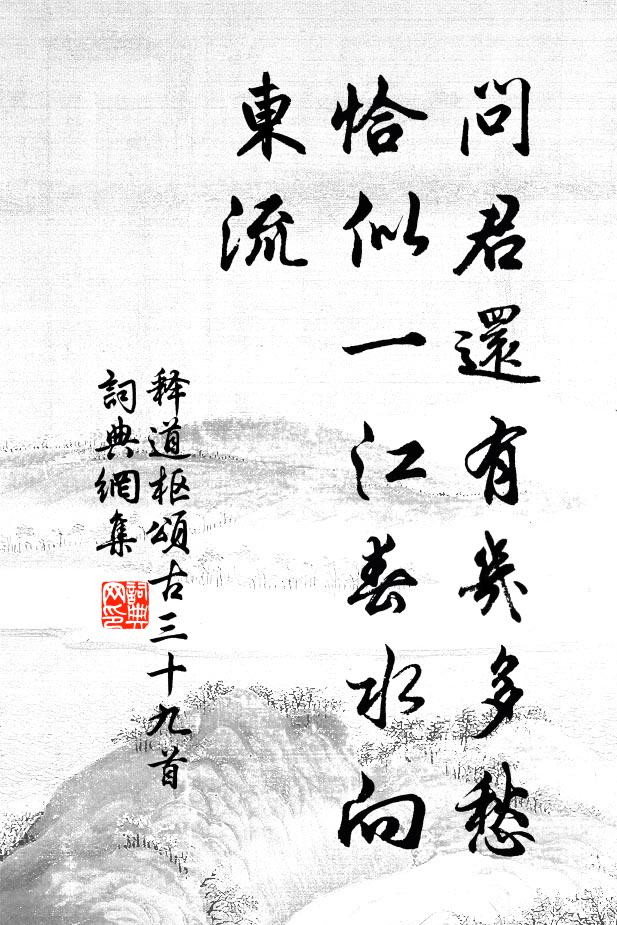 問君還有幾多愁
恰似一江春水向
東流
释道枢頌古三十九首
詞典網集
詞典网印